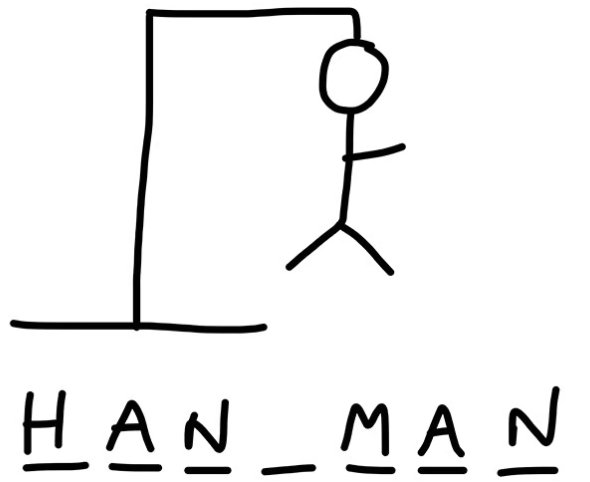 H A N _ M A N